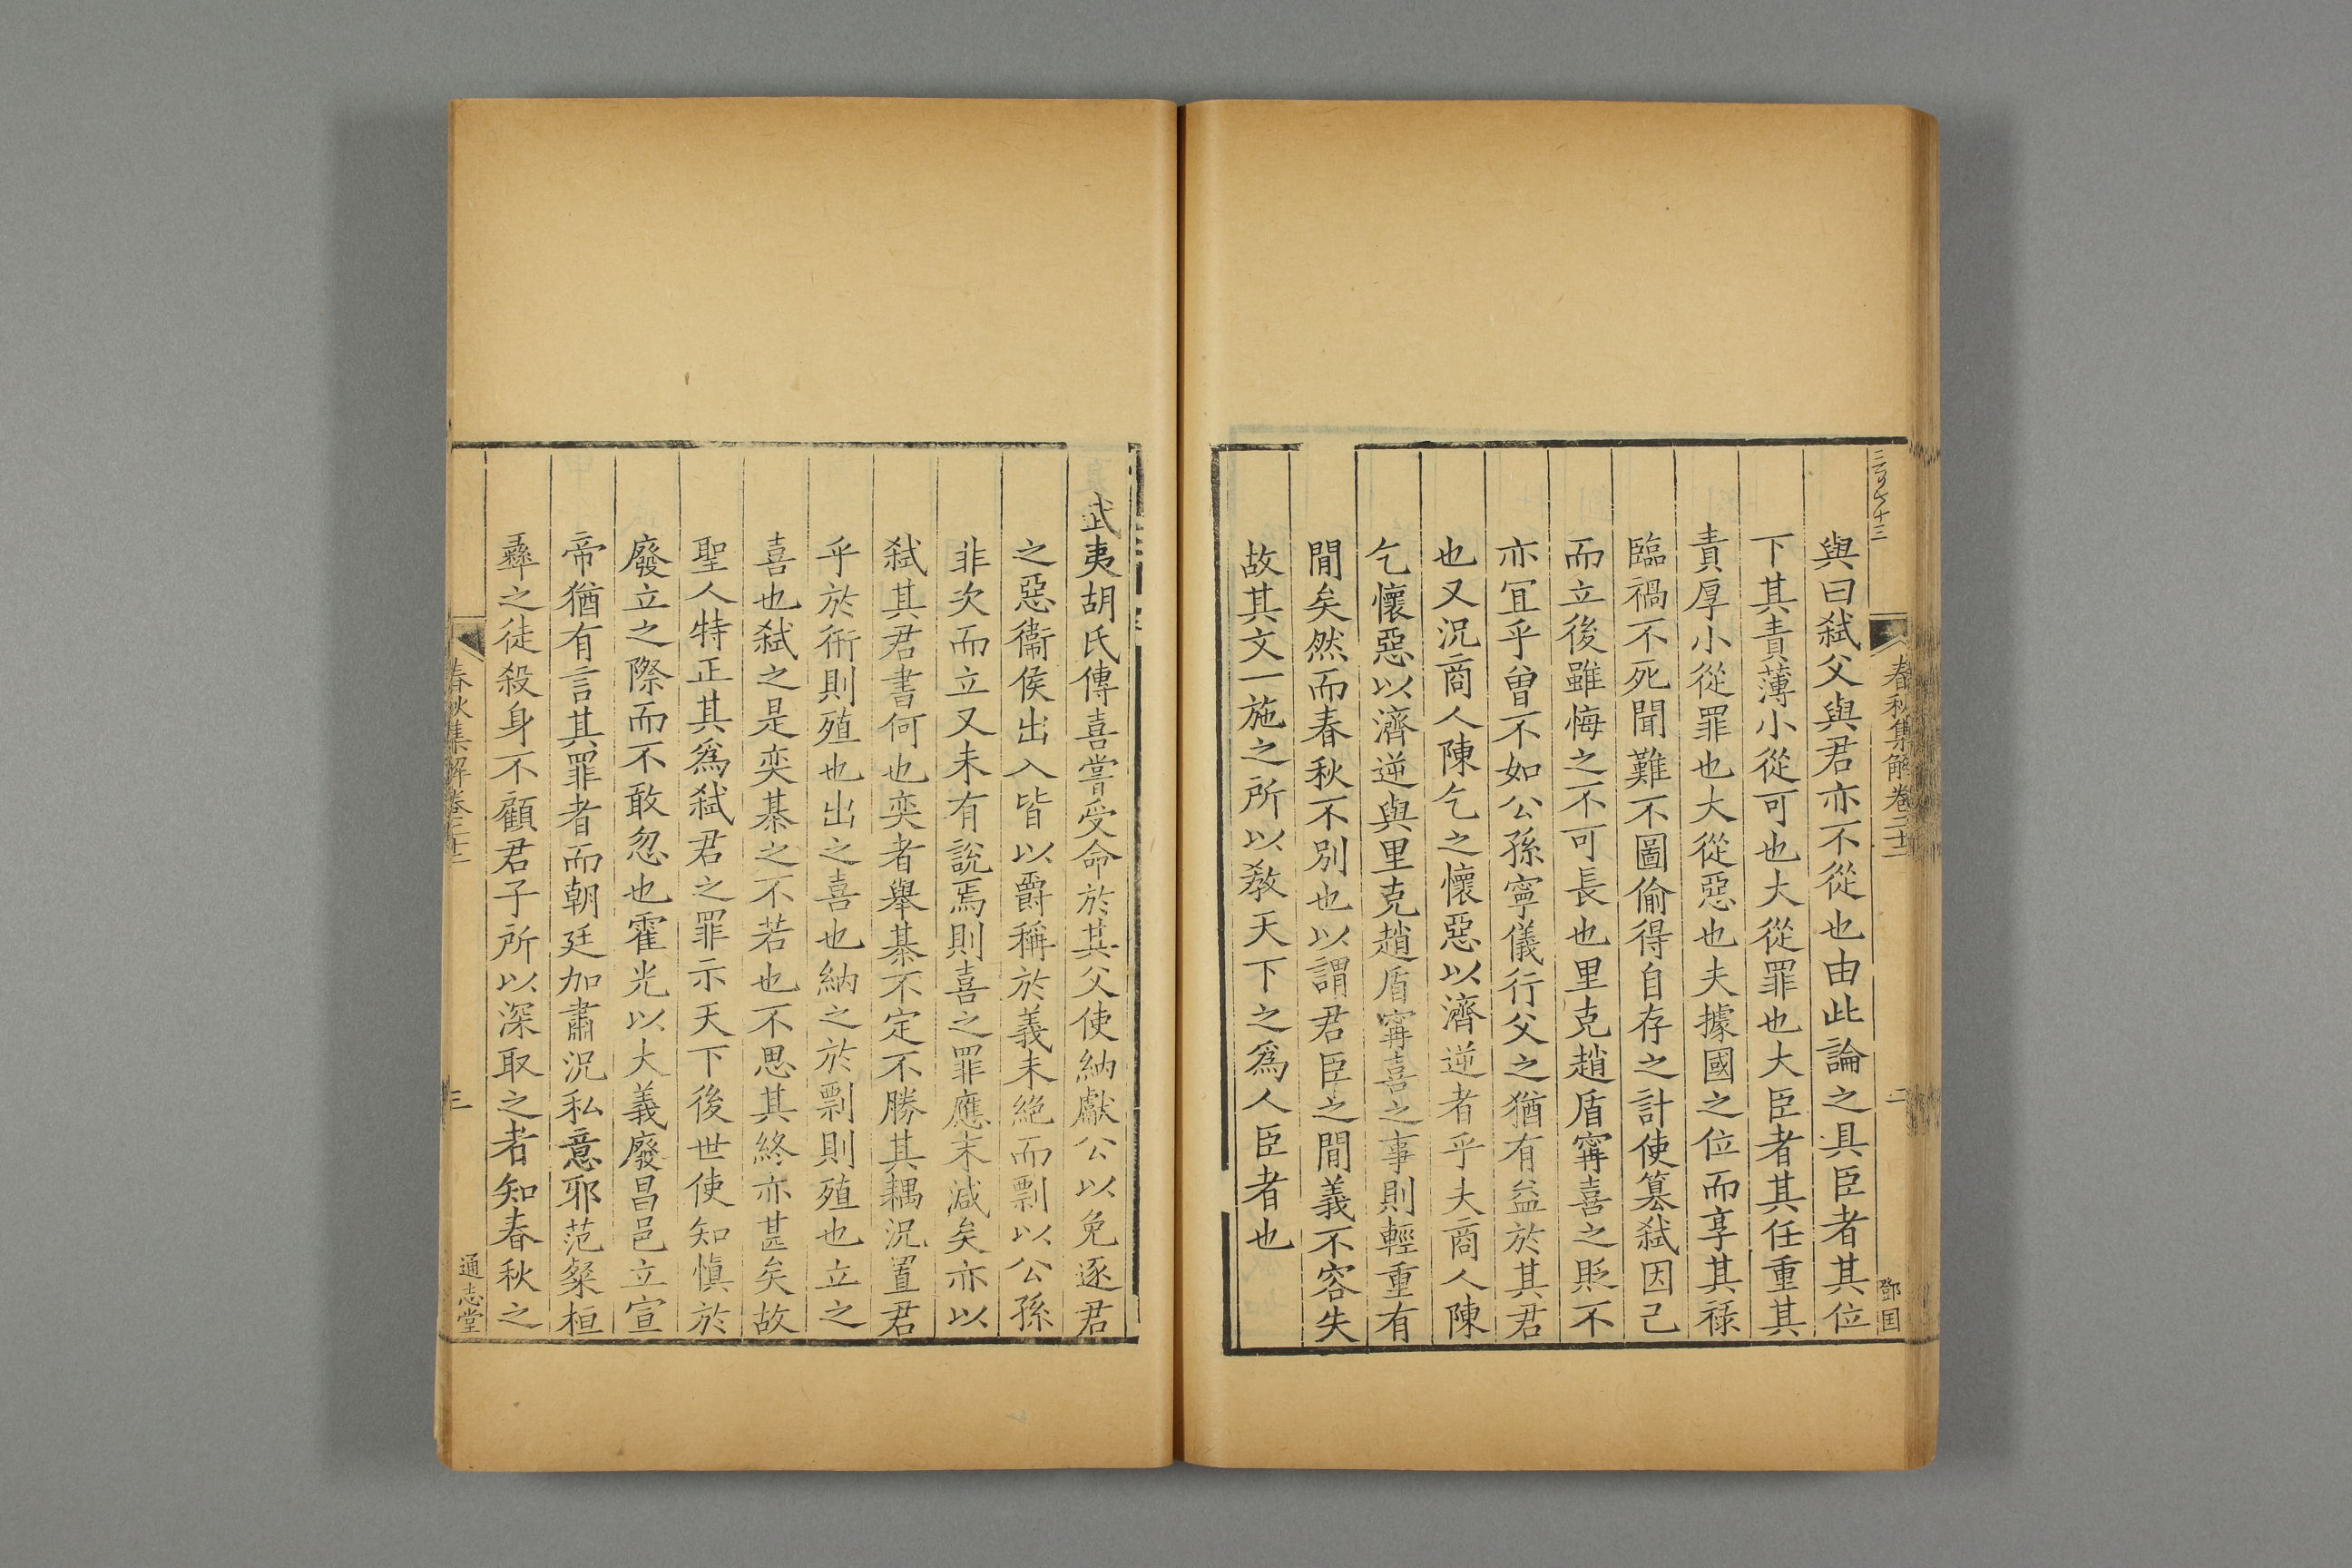 春秋集解卷二十二
二
鄧国
與曰弑父與君亦不從也由此論之具臣者其位
下其責薄小從可也大從罪也大臣者其任重其
責厚小從罪也大從惡也夫據國之位而享其祿
臨禍不死聞難不圖偷得自存之計使簒弑因己
而立後雖悔之不可長也里克趙盾甯喜之貶不
亦冝乎曾不如公孫寧儀行父之猶有益於其君
也又況商人陳乞之懷惡以濟逆者乎夫商人陳
乞懷惡以濟逆與里克趙盾甯喜之事則輕重有
閒矣然而春秋不別也以謂君臣之閒義不容失
故其文一施之所以敎天下之爲人臣者也
武夷胡氏傳喜嘗受命於其父使納獻公以免逐君
之惡衞侯出入皆以爵稱於義未絶而剽以公孫
非次而立又未有說焉則喜之罪應末減矣亦以
弑其君書何也奕者舉棊不定不勝其耦況置君
乎於衎則殖也出之喜也納之於剽則殖也立之
喜也弑之是奕棊之不若也不思其終亦甚矣故
聖人特正其爲弑君之罪示天下後世使知愼於
廢立之際而不敢忽也霍光以大義廢昌邑立宣
帝猶有言其罪者而朝廷加肅況私意邪范粲桓
彝之徒殺身不顧君子所以深取之者知春秋之
春秋集解卷二十二
三
通志堂